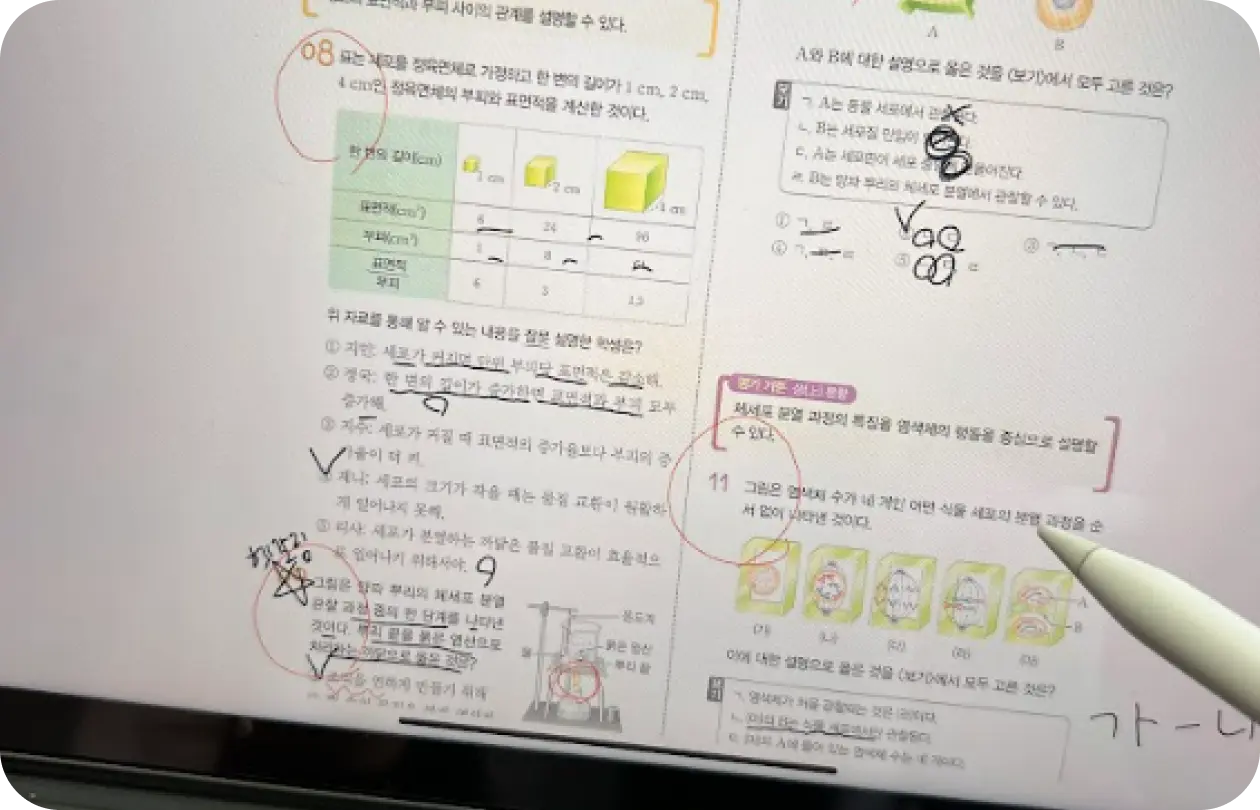 표면적과 부피 사이의 관계를 설명할 수 있다.
08 표는 세포를 정육면체로 가정하고 한 변의 길이가 1 cm, 2 cm,
4 cm인 정육면체의 부피와 표면적을 계산한 것이다.
한 변의 길이(cm)
1 cm
2 cm
4 cm
표면적(cm²)
6
24
96
부피(cm³)
1
8
표면적
부피
6
3
1.5
위 자료를 통해 알 수 있는 내용을 잘못 설명한 학생은?
① 지민: 세포가 커지면 단위 부피당 표면적은 감소해.
② 정국: 한 변의 길이가 증가하면 표면적과 부피 모두
증가해.
③ 지수: 세포가 커질 때 표면적의 증가율보다 부피의 증
가율이 더 커.
제니: 세포의 크기가 작을 때는 물질 교환이 원활하
게 일어나지 못해.
⑤ 리사: 세포가 분열하는 까닭은 물질 교환이 효율적으
로 일어나기 위해서야.
그림은 양파 뿌리의 체세포 분열
관찰 과정 중의 한 단계를 나타낸
것이다. 뿌리 끝을 묽은 염산으로
처리하는 까닭으로 옳은 것은?
연하게 만들기 위해
온도계
묽은 염산
물
A
B
A와 B에 대한 설명으로 옳은 것을 〈보기〉에서 모두 고른 것은?
보기
ㄱ. A는 동물 세포에서
ㄴ. B는 세포질 만입이
ㄷ. A는 세포판이 세포
ㄹ. B는 양파 뿌리의 체세포 분열에서 관찰할 수 있다.
①
③
④
⑤
평가 기준
체세포 분열 과정의 특징을 염색체의 행동을 중심으로 설명할
수 있다.
11 그림은 염색체 수가 네 개인 어떤 식물 세포의 분열 과정을 순
서 없이 나타낸 것이다.
A
B
(가)
(나)
(다)
(라)
(마)
이에 대한 설명으로 옳은 것을 〈보기〉에서 모두 고른 것은?
보기
ㄱ. 염색체가 처음 관찰되는 것은
ㄴ. (마)의 B는 식물 세포에서만 관찰된다.
ㄷ. (마)의 A에 들어 있는 염색체 수는 네 개이다.
가 - 나